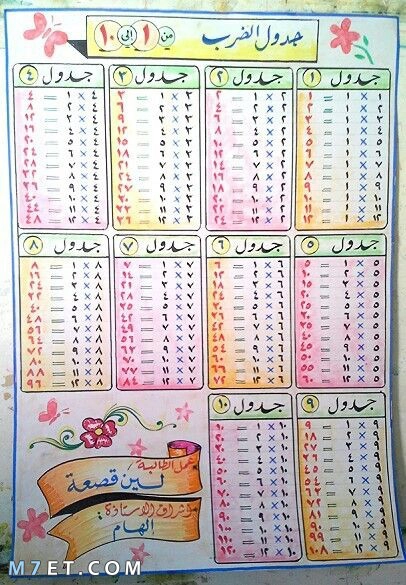 جدول الضرب من ١ الى ١٠
جدول ١
١ × ١ = ١
٢ × ١ = ٢
٣ × ١ = ٣
٤ × ١ = ٤
٥ × ١ = ٥
٦ × ١ = ٦
٧ × ١ = ٧
٨ × ١ = ٨
٩ × ١ = ٩
١٠ × ١ = ١٠
١١ × ١ = ١١
١٢ × ١ = ١٢
جدول ٢
٢ × ١ = ٢
٢ × ٢ = ٤
٢ × ٣ = ٦
٢ × ٤ = ٨
٢ × ٥ = ١٠
٢ × ٦ = ١٢
٢ × ٧ = ١٤
٢ × ٨ = ١٦
٢ × ٩ = ١٨
٢ × ١٠ = ٢٠
٢ × ١١ = ٢٢
٢ × ١٢ = ٢٤
جدول ٣
٣ × ١ = ٣
٣ × ٢ = ٦
٣ × ٣ = ٩
٣ × ٤ = ١٢
٣ × ٥ = ١٥
٣ × ٦ = ١٨
٣ × ٧ = ٢١
٣ × ٨ = ٢٤
٣ × ٩ = ٢٧
٣ × ١٠ = ٣٠
٣ × ١١ = ٣٣
٣ × ١٢ = ٣٦
جدول ٤
٤ × ١ = ٤
٤ × ٢ = ٨
٤ × ٣ = ١٢
٤ × ٤ = ١٦
٤ × ٥ = ٢٠
٤ × ٦ = ٢٤
٤ × ٧ = ٢٨
٤ × ٨ = ٣٢
٤ × ٩ = ٣٦
٤ × ١٠ = ٤٠
٤ × ١١ = ٤٤
٤ × ١٢ = ٤٨
جدول ٥
٥ × ١ = ٥
٥ × ٢ = ١٠
٥ × ٣ = ١٥
٥ × ٤ = ٢٠
٥ × ٥ = ٢٥
٥ × ٦ = ٣٠
٥ × ٧ = ٣٥
٥ × ٨ = ٤٠
٥ × ٩ = ٤٥
٥ × ١٠ = ٥٠
٥ × ١١ = ٥٥
٥ × ١٢ = ٦٠
جدول ٦
٦ × ١ = ٦
٦ × ٢ = ١٢
٦ × ٣ = ١٨
٦ × ٤ = ٢٤
٦ × ٥ = ٣٠
٦ × ٦ = ٣٦
٦ × ٧ = ٤٢
٦ × ٨ = ٤٨
٦ × ٩ = ٥٤
٦ × ١٠ = ٦٠
٦ × ١١ = ٦٦
٦ × ١٢ = ٧٢
جدول ٧
٧ × ١ = ٧
٧ × ٢ = ١٤
٧ × ٣ = ٢١
٧ × ٤ = ٢٨
٧ × ٥ = ٣٥
٧ × ٦ = ٤٢
٧ × ٧ = ٤٩
٧ × ٨ = ٥٦
٧ × ٩ = ٦٣
٧ × ١٠ = ٧٠
٧ × ١١ = ٧٧
٧ × ١٢ = ٨٤
جدول ٨
٨ × ١ = ٨
٨ × ٢ = ١٦
٨ × ٣ = ٢٤
٨ × ٤ = ٣٢
٨ × ٥ = ٤٠
٨ × ٦ = ٤٨
٨ × ٧ = ٥٦
٨ × ٨ = ٦٤
٨ × ٩ = ٧٢
٨ × ١٠ = ٨٠
٨ × ١١ = ٨٨
٨ × ١٢ = ٩٦
جدول ٩
٩ × ١ = ٩
٩ × ٢ = ١٨
٩ × ٣ = ٢٧
٩ × ٤ = ٣٦
٩ × ٥ = ٤٥
٩ × ٦ = ٥٤
٩ × ٧ = ٦٣
٩ × ٨ = ٧٢
٩ × ٩ = ٨١
٩ × ١٠ = ٩٠
٩ × ١١ = ٩٩
٩ × ١٢ = ١٠٨
جدول ١٠
١٠ × ١ = ١٠
١٠ × ٢ = ٢٠
١٠ × ٣ = ٣٠
١٠ × ٤ = ٤٠
١٠ × ٥ = ٥٠
١٠ × ٦ = ٦٠
١٠ × ٧ = ٧٠
١٠ × ٨ = ٨٠
١٠ × ٩ = ٩٠
١٠ × ١٠ = ١٠٠
١٠ × ١١ = ١١٠
١٠ × ١٢ = ١٢٠
عمل الطالبة/
لين قصعة
بإشراف الاستاذة:
الهام
M7ET.COM